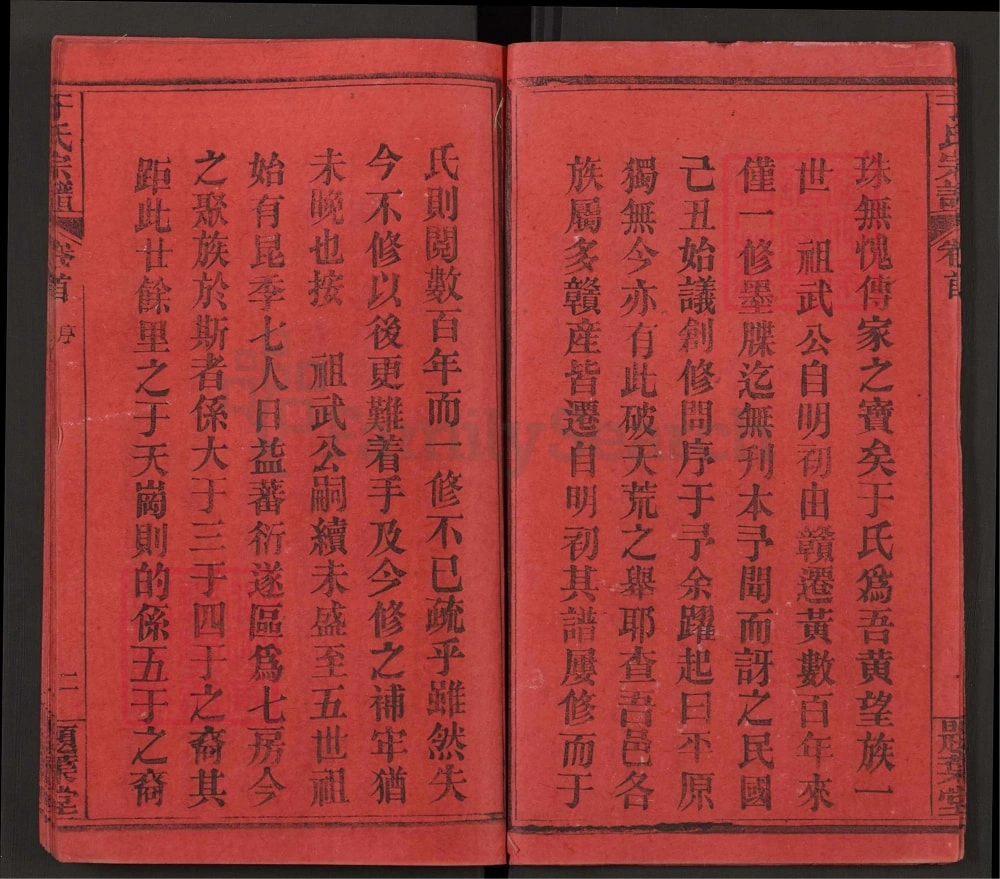 珠無愧傳家之寶矣于氏為吾黄望族一
世 祖武公自明初由贛遷黃數百年來
僅一修墨牒迄無刋本予聞而訝之民國
己丑始議創修問序于予余躍起曰平原
獨無今亦有此破天荒之舉耶查吾邑各
族屬多贛産皆遷自明初其譜屢修而于
氏則閱數百年而一修不已疏乎雖然失
今不修以後更難着手及今修之補牢猶
未晚也按 祖武公嗣續未盛至五世祖
始有昆季七人日益蕃衍遂區爲七房今
之聚族於斯者係大于三于四于之裔其
距此廿餘里之于天崗則的係五于之裔
于氏宗譜 卷首 序 二 題葉堂